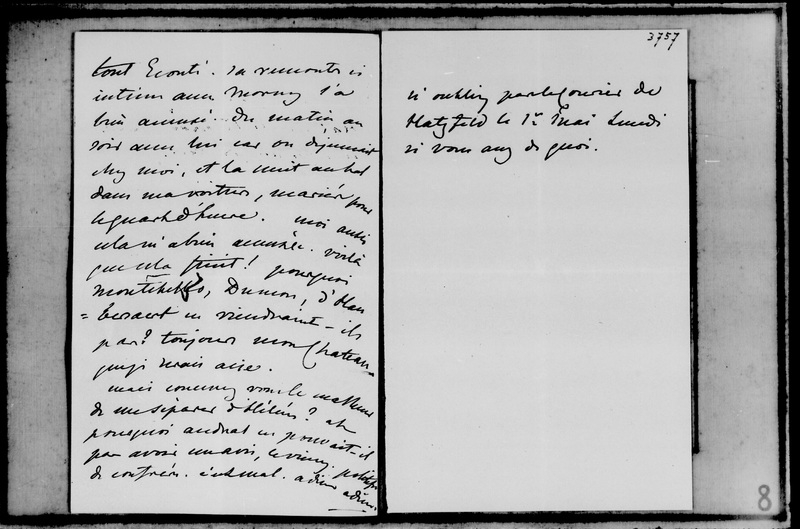 tout Ecouté. sa rencontre si
intime avec Morny l'a
bien amusé. du matin au
soir avec lui car on déjeunait
chez moi, et la nuit au bal
dans ma voiture, mariés pour
le quart d'heure. moi aussi
cela m'a bien amusée. voilà
que cela finit! pourquoi
Montebello, Dumon, d'Hau
=bersaert ne viendraient-ils
pas? toujours mon Chateau-
que je serais aise.
mais concevez vous le malheur
de me séparer d'Hélène? et
pourquoi andral ne pouvait-il
pas avoir un avis, le vieux
de confrère. c'est mal. adieu adieu.
3757
n'oubliez pas le Courier de
Hatzfeld le 1er Mai Lundi
si vous avez de quoi.
8